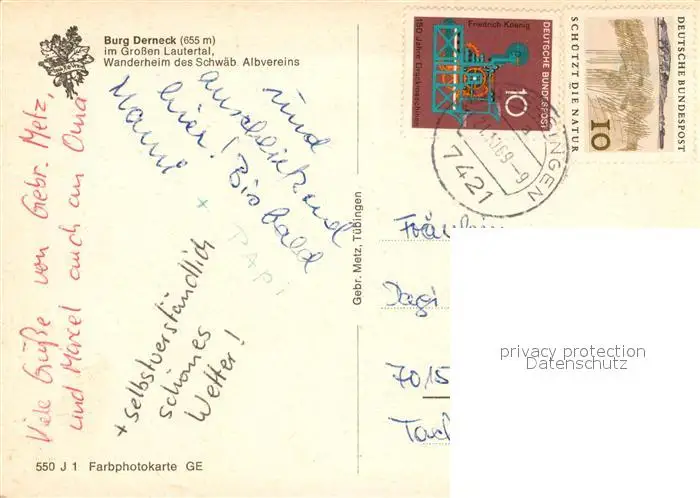 Burg Derneck (655 m)
im Großen Lautertal,
Wanderheim des Schwäb. Albvereins
Viele Grüße von Gebr. Metz,
und Marcel auch an Oma
rund
anschließend
hier! Bis bald
Mami
+ PAPI
+ selbstverständlich
schönes
Wetter!
550 J 1 Farbphotokarte GE
Gebr. Metz, Tübingen
Friedrich Koenig
150 Jahre Druckmaschinen
10
DEUTSCHE BUNDESPOST
SCHÜTZT DIE NATUR
10
DEUTSCHE BUNDESPOST
INGEN
69-9
7421
Fräulein
Dagi
7015
privacy protection
Datenschutz